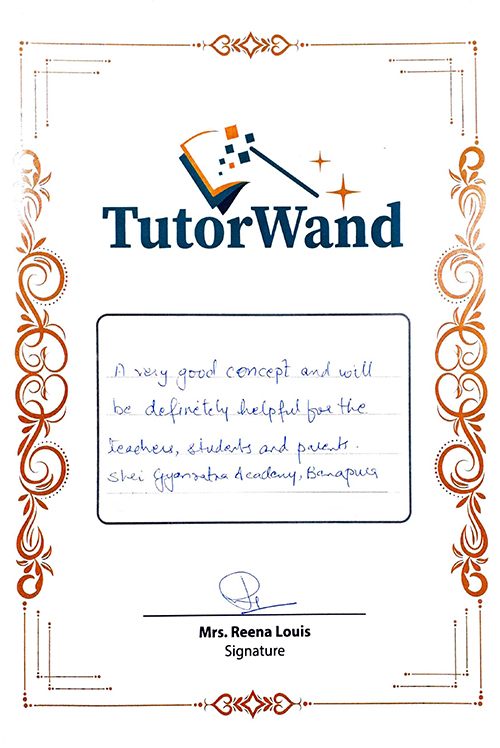 TutorWand
A very good concept and will
be definetely helpful for the
teachers, students and parents.
Shri Gyanratna Academy, Banapura
Mrs. Reena Louis
Signature